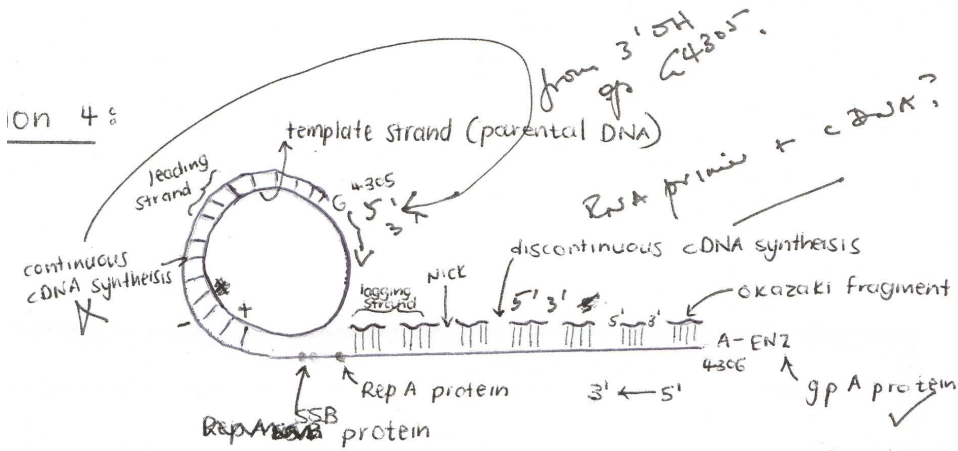 from 3' OH
gp G4305.
on 4:
template strand (parental DNA)
RNA primer + cDNA?
leading
strand
4305
G 5'
3'
discontinuous cDNA syntheisis
continuous
cDNA syntheisis
lagging
strand
NICK
5' 3'
5' 3'
okazaki fragment
+
-
A-ENZ
4306
RepA protein
3' ← 5'
gpA protein
SSB
protein